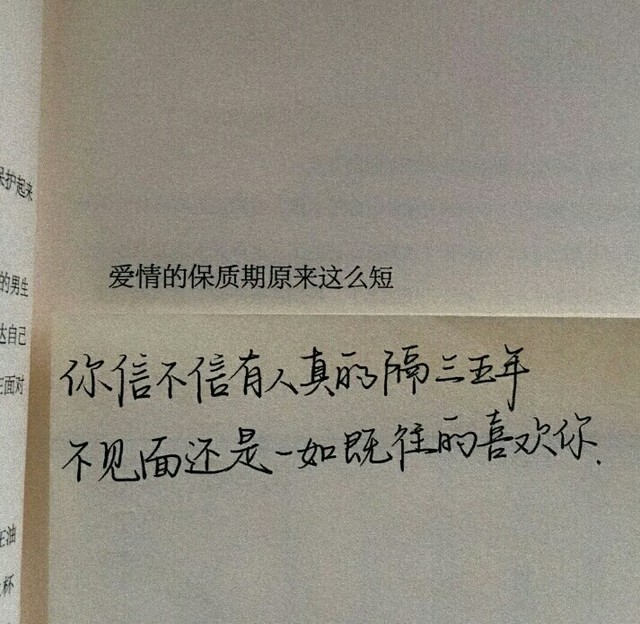 保护起来
的男生
达自己
在面对
爱情的保质期原来这么短
你信不信有人真的隔三五年
不见面还是一如既往的喜欢你.
在油
杯